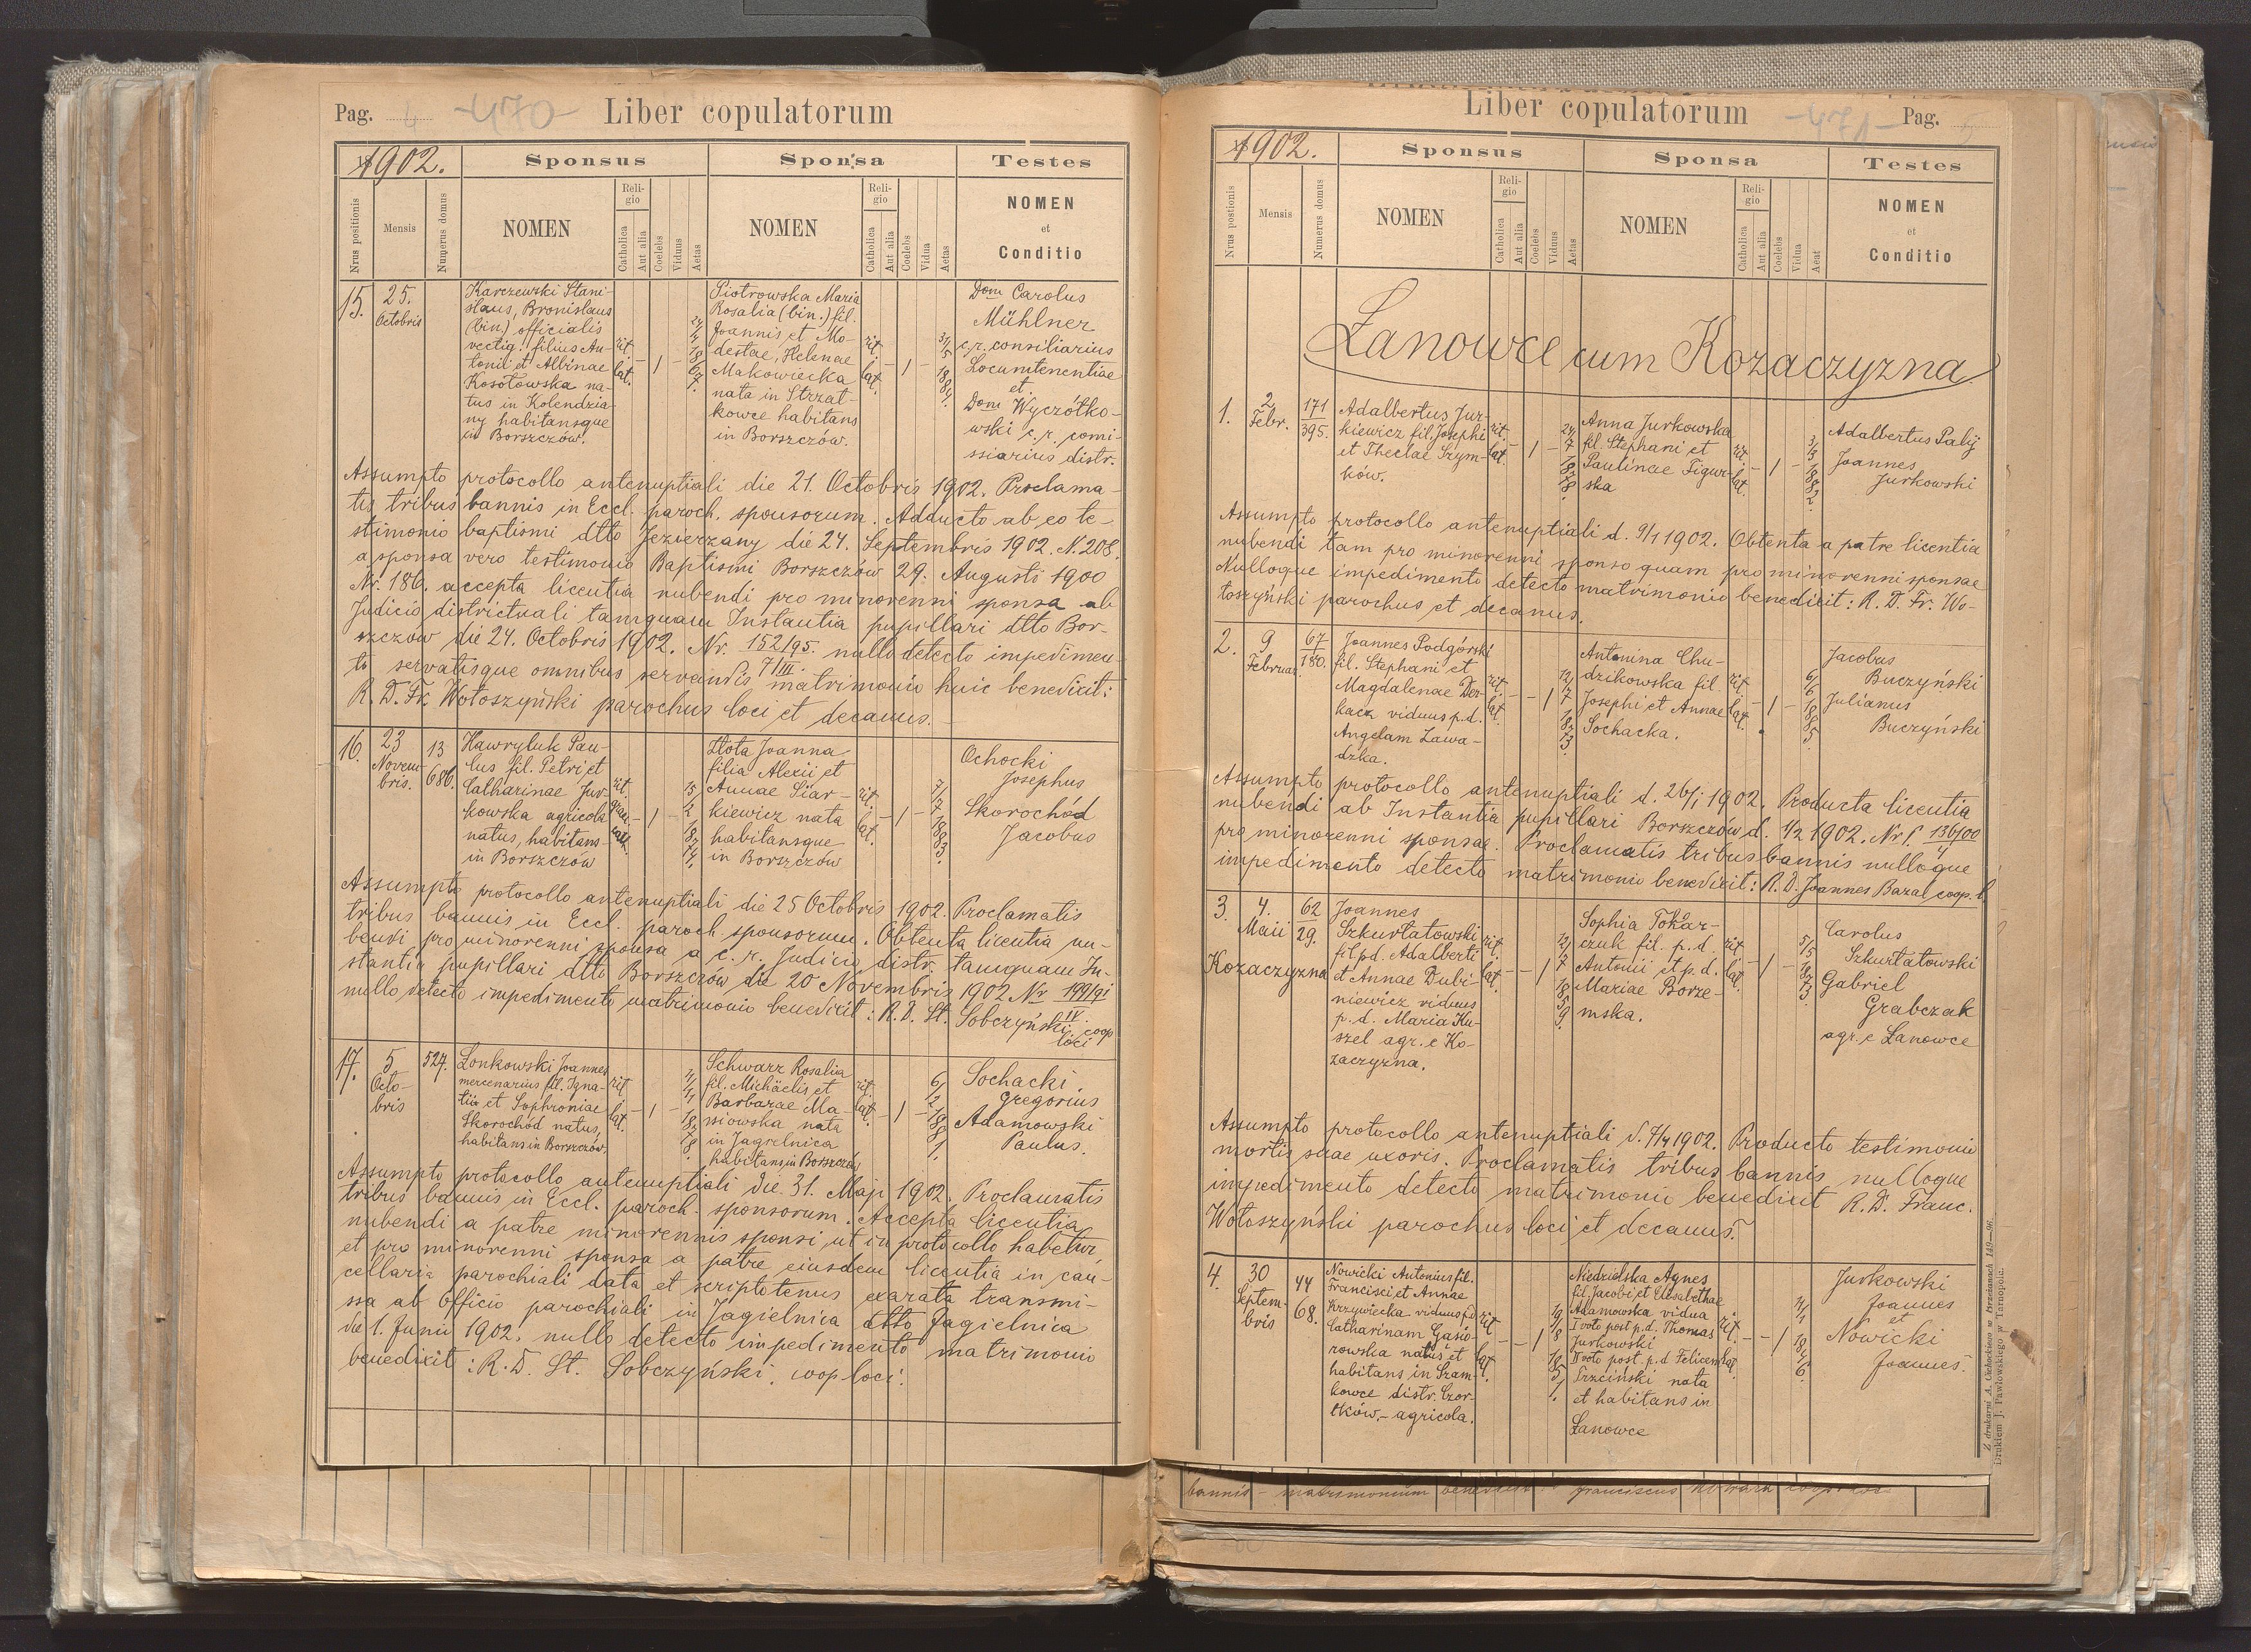 Pag. 4 -470- Liber copulatorum
1902.
Sponsus
Sponsa
Testes
Nrus positionis
Mensis
Numerus domus
NOMEN
Religio
Catholica
Aut alia
Coelebs
Viduus
Aetas
NOMEN
Religio
Catholica
Aut alia
Coelebs
Vidua
Aetas
NOMEN
et
Conditio
15.
25.
Octobris
Karczewski Stani-
slaus, Bronislaus
(bin.) officialis
vectig. filius An-
tonii et Albinae
Kosołowska na-
tus in Kolendzia-
ny habitansque
in Borszczów.
rit.
lat.
- 1 -
24/4
1867.
Piotrowska Maria
Rosalia (bin.) fil.
Joannis et Mo-
destae, Helenae
Makowiecka
nata in Strzał-
kowce habitans
in Borszczów.
rit.
lat.
- 1 -
31/5
1884.
Dom Carolus
Mühlner
c.r. consiliarius
Locumtenentiae
et
Dom Wyczółko-
wski c.r. comi-
ssiarius distr.
Assumpto protocollo antenuptiali die 21. Octobris 1902. Proclama-
tis tribus bannis in Eccl. paroch. sponsorum. Adducto ab eo te-
stimonio baptismi dtto Jezierzany die 24. Septembris 1902. N. 208.
a sponsa vero testimonio Baptismi Borszczów 29. Augusti 1900
Nr. 186. accepta licentia nubendi pro minorenni sponsa ab
Judicio districtuali tamquam Instantia pupillari dtto Bor-
szczów die 24. Octobris 1902. Nr. 152/95. nullo detecto impedimen-
7/III.
to servatisque omnibus servandis matrimonio huic benedixit:
R. D. Fr. Wołoszyński parochus loci et decanus.
16.
23
Novem-
bris.
13
686.
Hawryluk Pau-
lus fil. Petri et
Catharinae Jur-
kowska agricola
natus, habitans-
in Borszczów
rit.
graec.
cath.
- 1 -
15/2
1874.
Złota Joanna
filia Alexii et
Annae Siar-
kiewicz nata
habitansque
in Borszczów
rit.
lat.
- 1 -
7/7
1883.
Ochocki
Josephus
Skorochód
Jacobus
Assumpto protocollo antenuptiali die 25 Octobris 1902. Proclamatis
tribus bannis in Eccl. paroch. sponsorum. Obtenta licentia nu-
bendi pro minorenni sponsa a c.r. Judicio distr. tamquam In-
stantia pupillari dtto Borszczów die 20 Novembris 1902 Nr 199/91
IV.
nullo detecto impedimento matrimonio benedixit: R. D. St. Sobczyński coop
loci
17.
5
Octo-
bris
527.
Łonkowski Joannes
mercenarius fil. Igna-
tii et Sophroniae
Skorochód natus,
habitans in Borszczów.
rit.
lat.
- 1 -
1878.
Schwarz Rosalia
fil. Michäelis et
Barbarae Ma-
siowska nata
in Jagielnica
habitans in Borszczów
rit.
lat.
- 1 -
6/2
1881.
Sochacki
Gregorius
Adamowski
Paulus.
Assumpto protocollo antenuptiali die 31. Maji 1902. Proclamatis
tribus bannis in Eccl. paroch. sponsorum. Accepta licentia
nubendi a patre minorennis sponsi ut in protocollo habetur
et pro minorenni sponsa a patre eiusdem licentia in can-
cellaria parochiali data et scriptotenus exarata transmi-
ssa ab Officio parochiali in Jagielnica dtto Jagielnica
die 1. Junii 1902. nullo detecto impedimento matrimonio
benedixit: R. D. St. Sobczyński. coop loci.
Liber copulatorum -471- Pag. 5
1902.
Sponsus
Sponsa
Testes
Nrus postionis
Mensis
Numerus domus
NOMEN
Religio
Catholica
Aut alia
Coelebs
Viduus
Aetas
NOMEN
Religio
Catholica
Aut alia
Coelebs
Vidua
Aeat
NOMEN
et
Conditio
Łanowce cum Kozaczyzna
1.
2
Febr.
171
395.
Adalbertus Jur-
kiewicz fil. Josephi
et Theclae Szym-
ków.
rit.
lat.
- 1 -
24/7
1878.
Anna Jurkowska
fil. Stephani et
Paulinae Figur-
ska
rit.
lat.
- 1 -
3/3
1882.
Adalbertus Palij
Joannes
Jurkowski
Assumpto protocollo antenuptiali d. 9/1 1902. Obtenta a patre licentia
nubendi tam pro minorenni sponso quam pro minorenni sponsae
Nulloque impedimento detecto matrimonio benedixit: R. D. Fr. Wo-
łoszyński parochus et decanus.
2.
9
Februar.
67
180.
Joannes Podgórski
fil. Stephani et
Magdalenae Der-
kacz viduus p.d.
Angelam Zawa-
dzka.
rit.
lat.
- - 1
12/7
1873.
Antonina Chu-
dzikowska fil.
Josephi et Annae
Sochacka.
rit.
lat.
- 1 -
6/6
1885.
Jacobus
Buczyński
Julianus
Buczyński
Assumpto protocollo antenuptiali d. 26/1 1902. Producta licentia
nubendi ab Instantia pupillari Borszczów d. 1/2 1902. Nr P. 136/00
4
pro minorenni sponsae. Proclamatis tribus bannis nulloque
impedimento detecto matrimonio benedixit: R. D. Joannes Bazal coop. l.
3.
4.
Maii
Kozaczyzna
62
29.
Joannes
Szkurłatowski
fil. p.d. Adalberti
et Annae Dubi-
niewicz viduus
p. d. Maria Ku-
szel agr. e Ko-
zaczyzna.
rit.
lat.
- - 1
12/7
1859.
Sophia Tokar-
czuk fil. p. d.
Antonii et p. d.
Mariae Borze-
mska.
rit.
lat.
- 1 -
5/5
1873
Carolus
Szkurłatowski
Gabriel
Grabczak
agr. e Łanowce
Assumpto protocollo antenuptiali d. 7/4 1902. Producto testimonio
mortis suae uxoris. Proclamatis tribus bannis nulloque
impedimento detecto matrimonio benedixit R. D. Franc.
Wołoszyński parochus loci et decanus.
4.
30
Septem-
bris
44
68.
Nowicki Antonius fil.
Francisci et Annae
Krzywiecka viduus p.d.
Catharinam Gąsio-
rowska natus et
habitans in Szam-
kowce distr. Czor-
tków. - agricola.
rit.
lat.
- - 1
1851.
Niedzielska Agnes
fil. Jacobi et Elisabethae
Adamowska vidua
I voto post p.d. Thomas
Jurkowski
II voto post. p.d Felicem
Trzciński nata
et habitans in
Łanowce
rit.
lat.
- - 1
Jurkowski
Joannes
et
Nowicki
Joannes.
Z drukarni A. Cichockiego w Brzeżanach 149-96.
Drukiem J. Pawłowskiego w Tarnopolu.
bannis - matrimonium benedixit franciscus